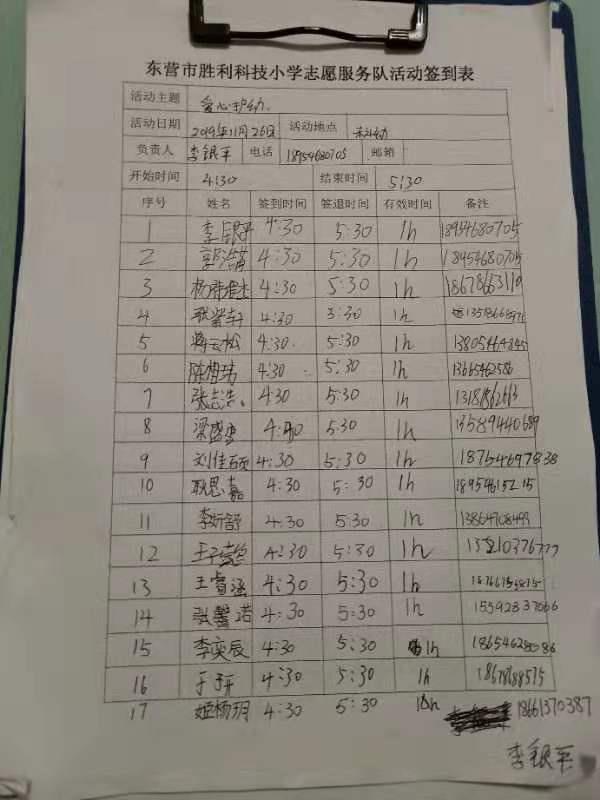 东营市胜利科技小学志愿服务队活动签到表
活动主题 爱心护幼.
活动日期 2019年11月26日 活动地点 科幼
负责人 李银平 电话 18954680705 邮箱
开始时间 4:30 结束时间 5:30
序号 姓名 签到时间 签退时间 有效时间 备注
1 4:30 5:30 1h 18954680705
2 4:30 5:30 1h 18954680705
3 4:30 5:30 1h 18678663119
4 4:30 3:30 1h
5 蒋云松 4:30. 5:30 1h
6 4:30 5:30 1h
7 张志浩 4:30 5:30 1h
8 4:30 5:30 1h 13589440689
9 刘佳硕 4:30 5:30 1h 18754697838
10 耿思嘉 4:30 5:30 1h 18954615215
11 李妍舒 4:30 5:30 1h 13864708493
12 4:30 5:30 1h
13 王睿涵 4:30 5:30 1h
14 张馨诺 4:30 5:30 1h
15 李奕辰 4:30 5:30 1h 18654628086
16 4:30 5:30 1h
17 姬杨玥 4:30 5:30 1h 18661370387
李银平